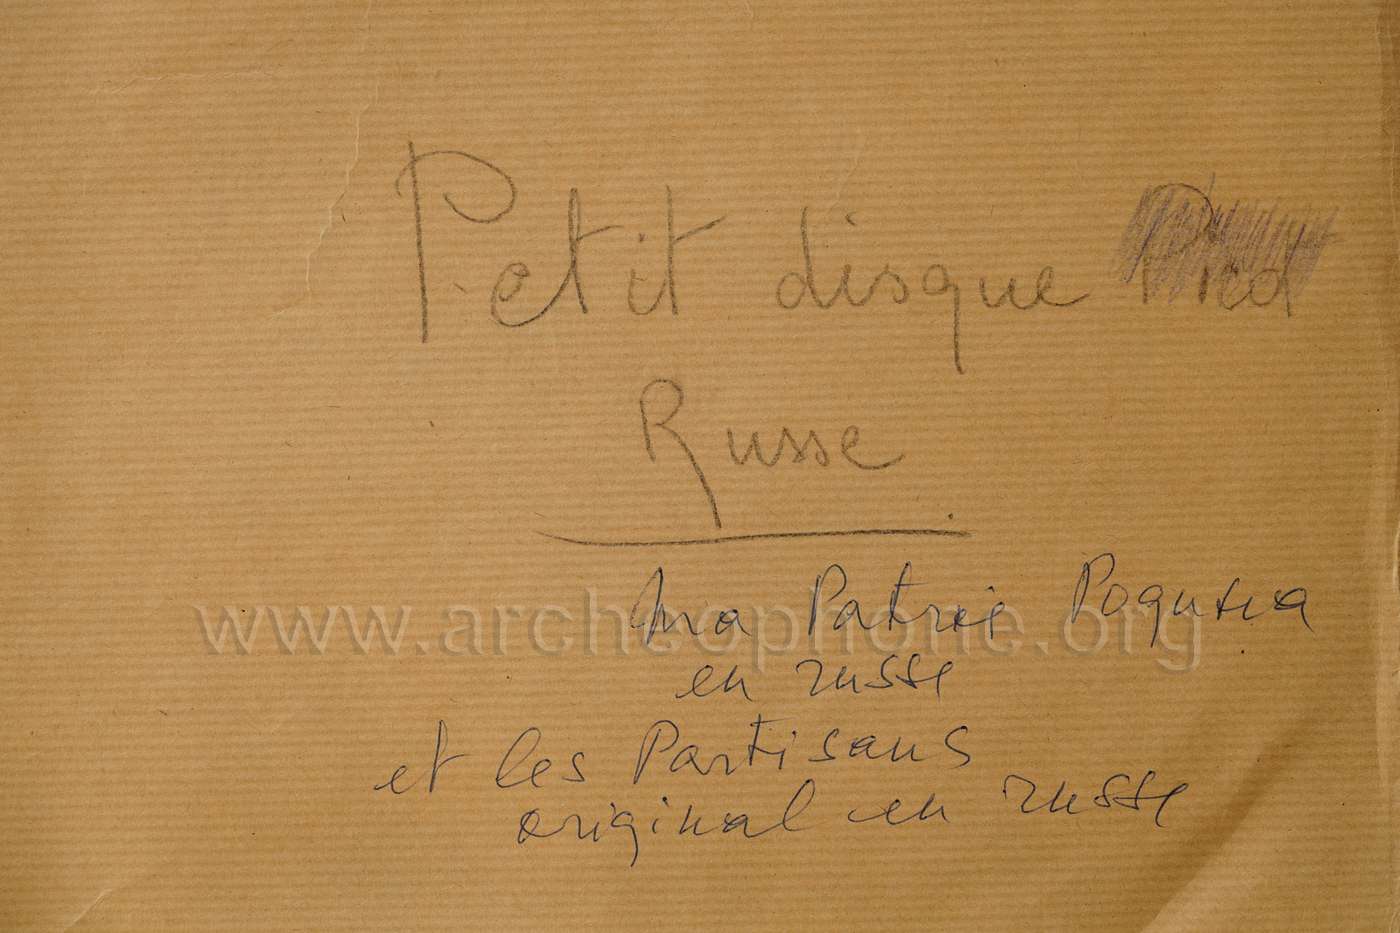 Petit disque
Russe
Ma Patrie
www.archeophone.org
en russe
et les Partisans
original en russe